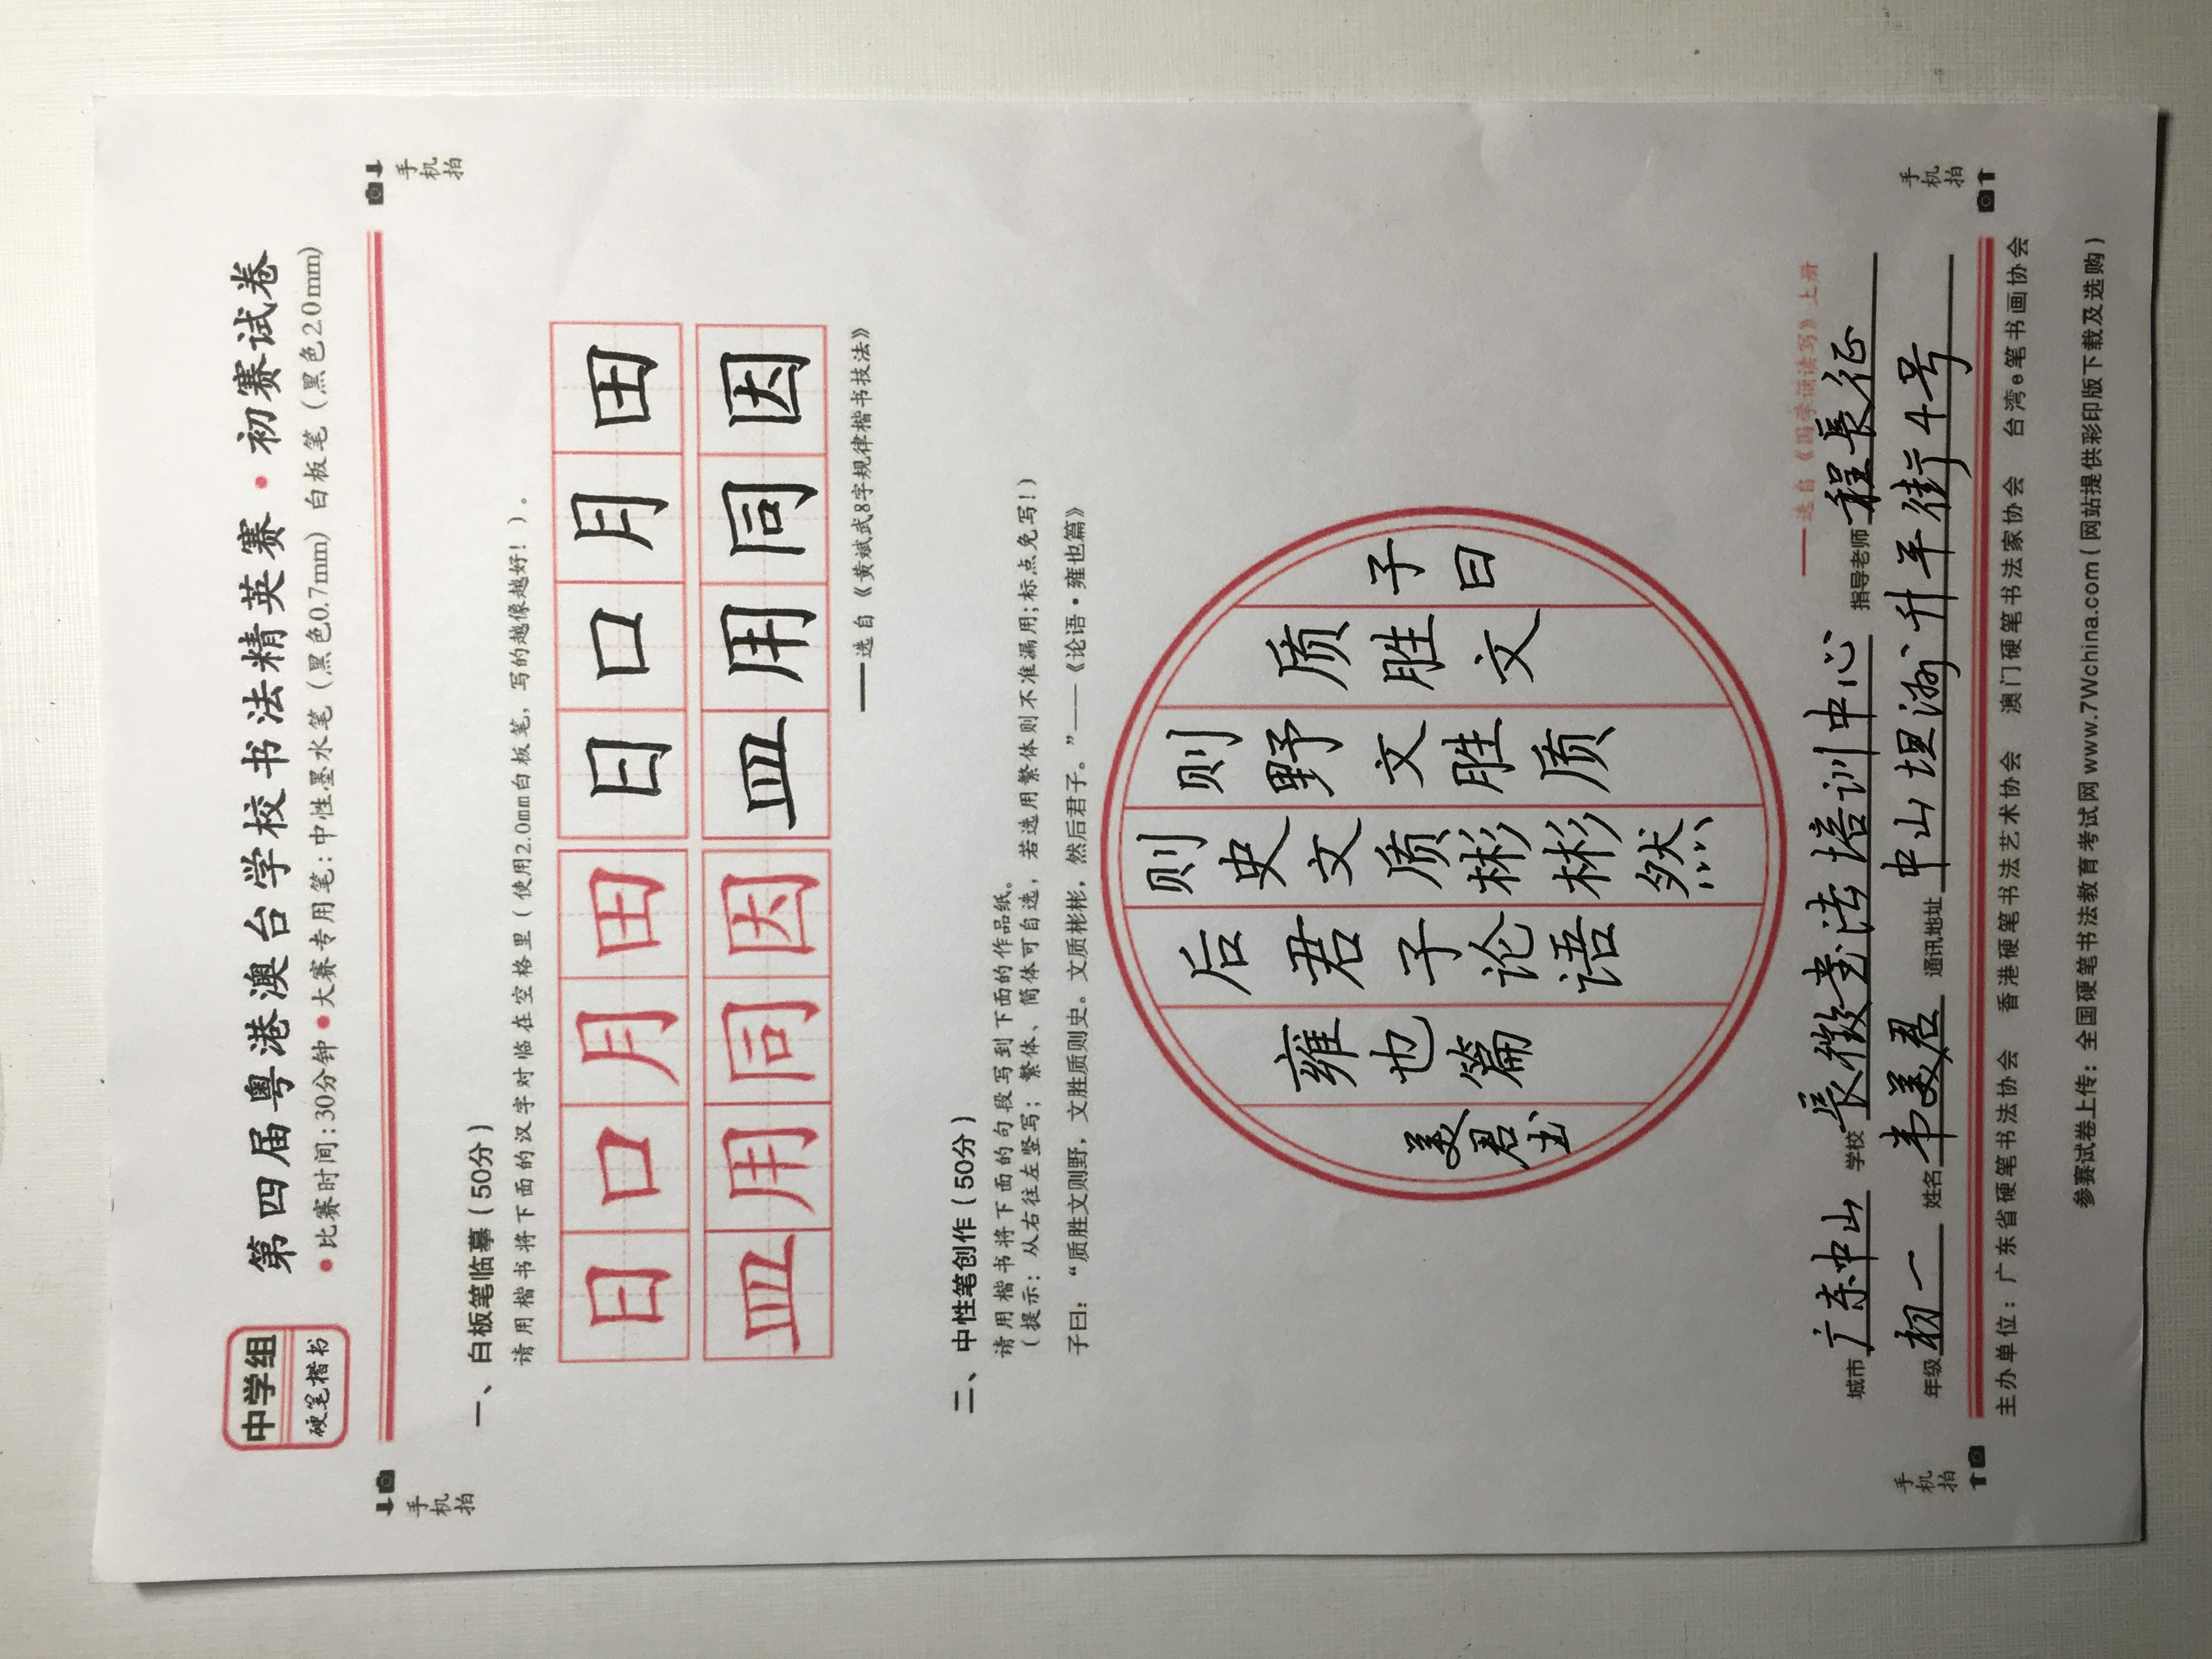 中学组
硬笔楷书
第四届粤港澳台学校书法精英赛·初赛试卷
•比赛时间:30分钟•大赛专用笔:中性墨水笔(黑色0.7mm) 白板笔(黑色2.0mm)
手机拍
手机拍
一、白板笔临摹(50分)
请用楷书将下面的汉字对临在空格里(使用2.0mm白板笔,写的越像越好!)。
日口月田日口月田
皿用同因皿用同因
——选自《黄斌武8字规律楷书技法》
二、中性笔创作(50分)
请用楷书将下面的句段写到下面的作品纸。
(提示:从右往左竖写;繁体、简体可自选,若选用繁体则不准漏用;标点免写!)
子曰:“质胜文则野,文胜质则史。文质彬彬,然后君子。”——《论语·雍也篇》
子曰
质胜文
则野文胜质
则史文质彬彬然
后君子论语
雍也篇
美君书
——选自《国学诵读写》上册
城市 广东中山 学校 長徵书法培训中心 指导老师 程長征
年级 初一 姓名 韦美君 通讯地址 中山坦洲升平街4号
手机拍
手机拍
主办单位:广东省硬笔书法协会 香港硬笔书法艺术协会 澳门硬笔书法家协会 台湾e笔书画协会
参赛试卷上传:全国硬笔书法教育考试网 www.7Wchina.com(网站提供彩印版下载及选购)